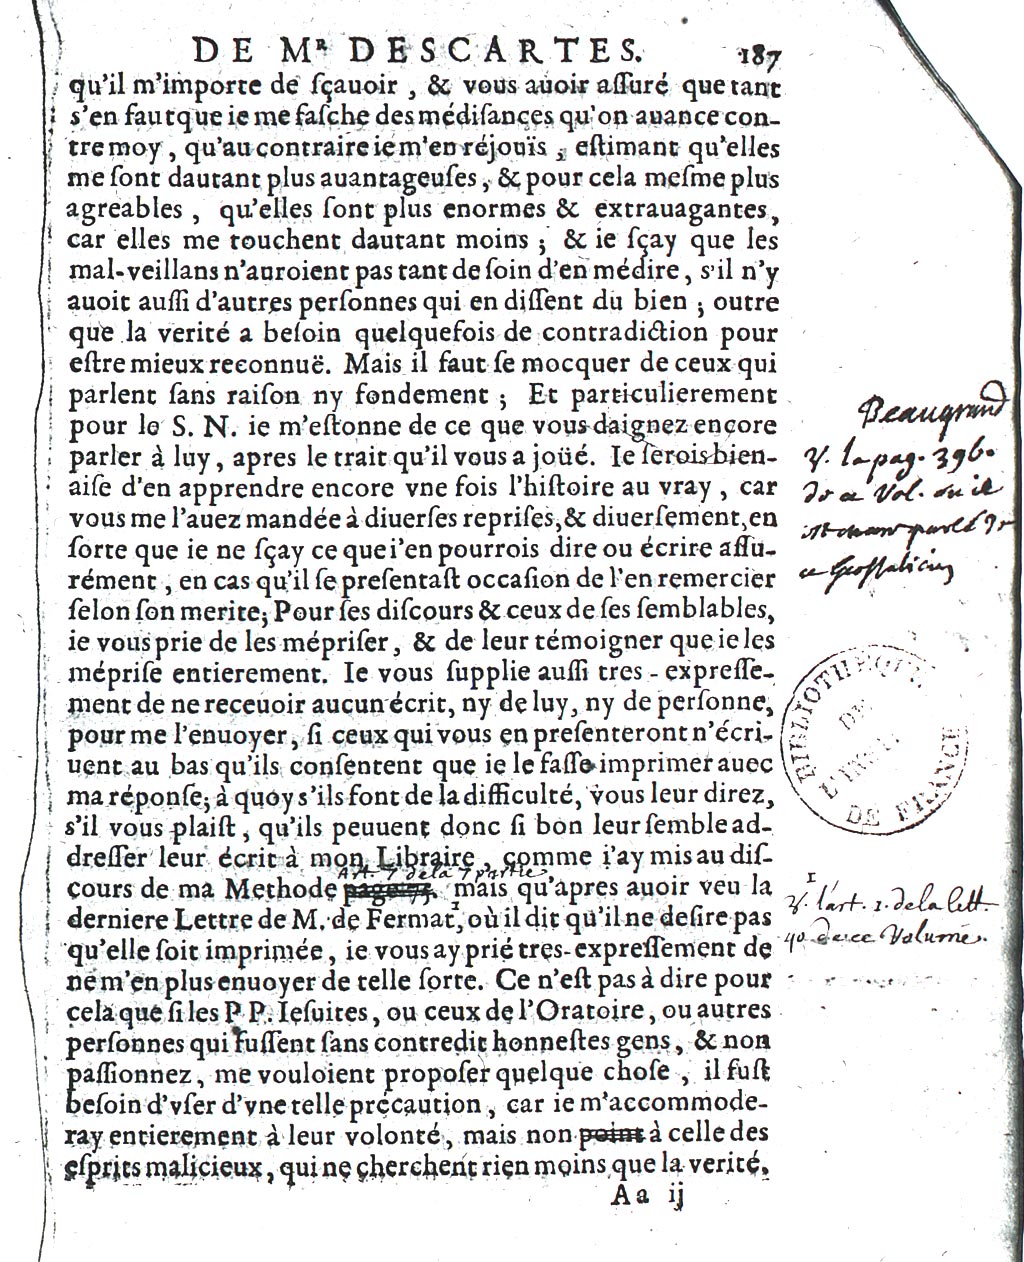 DE Mʀ DESCARTES. 187
qu'il m'importe de ſçauoir, & vous auoir aſſuré que tant
s'en faut que ie me faſche des médiſances qu'on auance con-
tre moy, qu'au contraire ie m'en réjouïs, eſtimant qu'elles
me ſont dautant plus auantageuſes, & pour cela meſme plus
agreables, qu'elles ſont plus enormes & extrauagantes,
car elles me touchent dautant moins; & ie ſçay que les
mal-veillans n'auroient pas tant de ſoin d'en médire, s'il n'y
auoit auſſi d'autres perſonnes qui en diſſent du bien; outre
que la verité a beſoin quelquefois de contradiction pour
eſtre mieux reconnuë. Mais il faut ſe mocquer de ceux qui
parlent ſans raiſon ny fondement; Et particulierement
pour le S. N. ie m'eſtonne de ce que vous daignez encore
parler à luy, apres le trait qu'il vous a joüé. Ie ſerois bien-
aiſe d'en apprendre encore vne fois l'hiſtoire au vray, car
vous me l'auez mandée à diuerſes repriſes, & diuerſement, en
ſorte que ie ne ſçay ce que i'en pourrois dire ou écrire aſſu-
rément, en cas qu'il ſe preſentaſt occaſion de l'en remercier
ſelon ſon merite; Pour ſes diſcours & ceux de ſes ſemblables,
ie vous prie de les mépriſer, & de leur témoigner que ie les
mépriſe entierement. Ie vous ſupplie auſſi tres-expreſſe-
ment de ne receuoir aucun écrit, ny de luy, ny de perſonne,
pour me l'enuoyer, ſi ceux qui vous en preſenteront n'écri-
uent au bas qu'ils conſentent que ie le faſſe imprimer auec
ma réponſe; à quoy s'ils font de la difficulté, vous leur direz,
s'il vous plaiſt, qu'ils peuuent donc ſi bon leur ſemble ad-
dreſſer leur écrit à mon Libraire, comme i'ay mis au diſ-
Art. 7 de la 7 partie
cours de ma Methode page 75. mais qu'apres auoir veu la
derniere Lettre de M. de Fermat,¹ où il dit qu'il ne deſire pas
qu'elle ſoit imprimée, ie vous ay prié tres-expreſſement de
ne m'en plus enuoyer de telle ſorte. Ce n'eſt pas à dire pour
cela que ſi les P P. Ieſuites, ou ceux de l'Oratoire, ou autres
perſonnes qui fuſſent ſans contredit honneſtes gens, & non
paſſionnez, me vouloient propoſer quelque choſe, il fuſt
beſoin d'vſer d'vne telle précaution, car ie m'accommode-
ray entierement à leur volonté, mais non point à celle des
eſprits malicieux, qui ne cherchent rien moins que la verité.
Aa ij
Beaugrand
V. la pag. 396.
de ce Vol. ou il
ce Geostaticien
BIBLIOTHEQUE
DE
L'INSTI.
DE FRANCE
1
V. l'art. 1. de la lett.
40 de ce Volume.